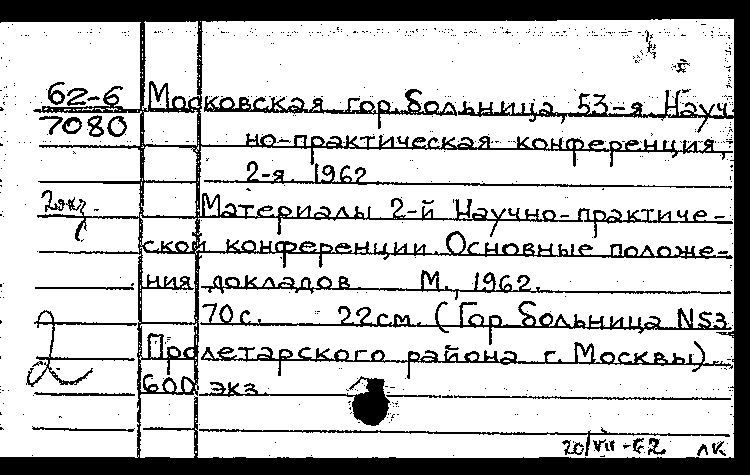 62-6 Московская гор. больница, 53-я. Науч
7080 но-практическая конференция,
2-я. 1962
2экз. Материалы 2-й Научно-практиче-
ской конференции. Основные положе-
ния докладов. М., 1962.
70с. 22см. (Гор. больница №53
Пролетарского района г. Москвы).
2 600 экз.
20/VII-62 ЛК